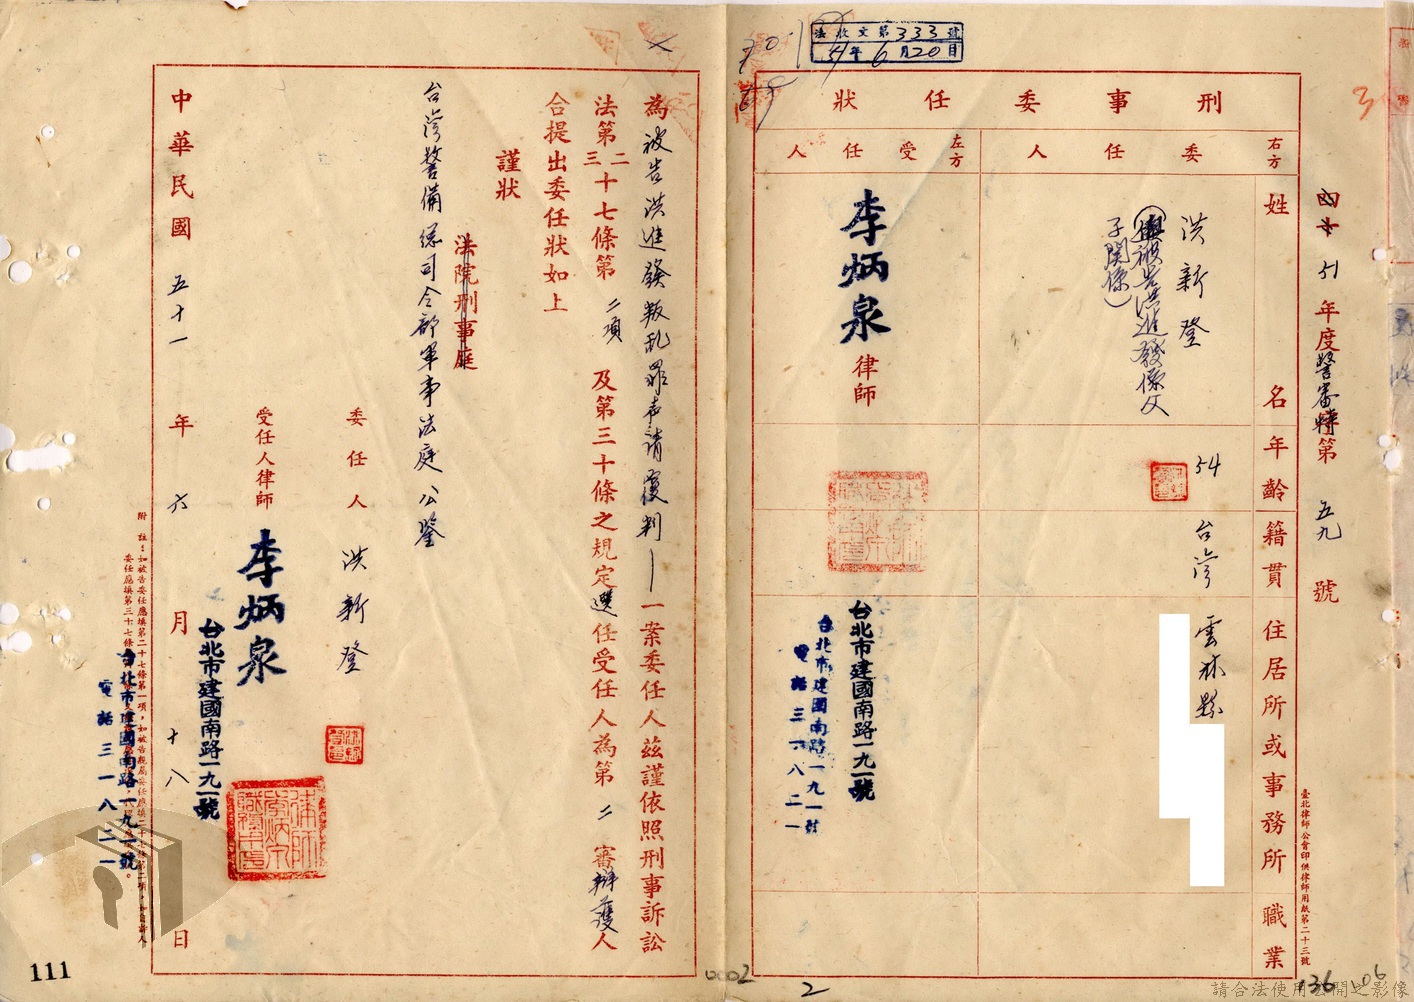 法收文第333號
51年6月20日
3
51年度警審特第五九號
刑事委任狀
右方
委任人
左方
受任人
姓名
年齡
籍貫
住居所或事務所
職業
洪新登
(與被告洪進發係父
子關係)
54
台灣
雲林縣
李炳泉律師
台北市建國南路一九一號
台北市建國南路一九一號
電話三六八二一
臺北律師公會印供律師用紙第二十三號
為被告洪進發叛乱罪声請覆判一案委任人茲謹依照刑事訴訟
法第二三十七條第二項及第三十條之規定選任受任人為第二審辯護人
合提出委任狀如上
謹狀
法院刑事庭
台灣警備總司令部軍事法庭公鑒
委任人洪新登
受任人律師李炳泉
台北市建國南路一九一號
中華民國五十一年六月十八日
台北市建國南路一九一號
電話三一八二一
111
0002
2
136
106
請合法使用公開之影像